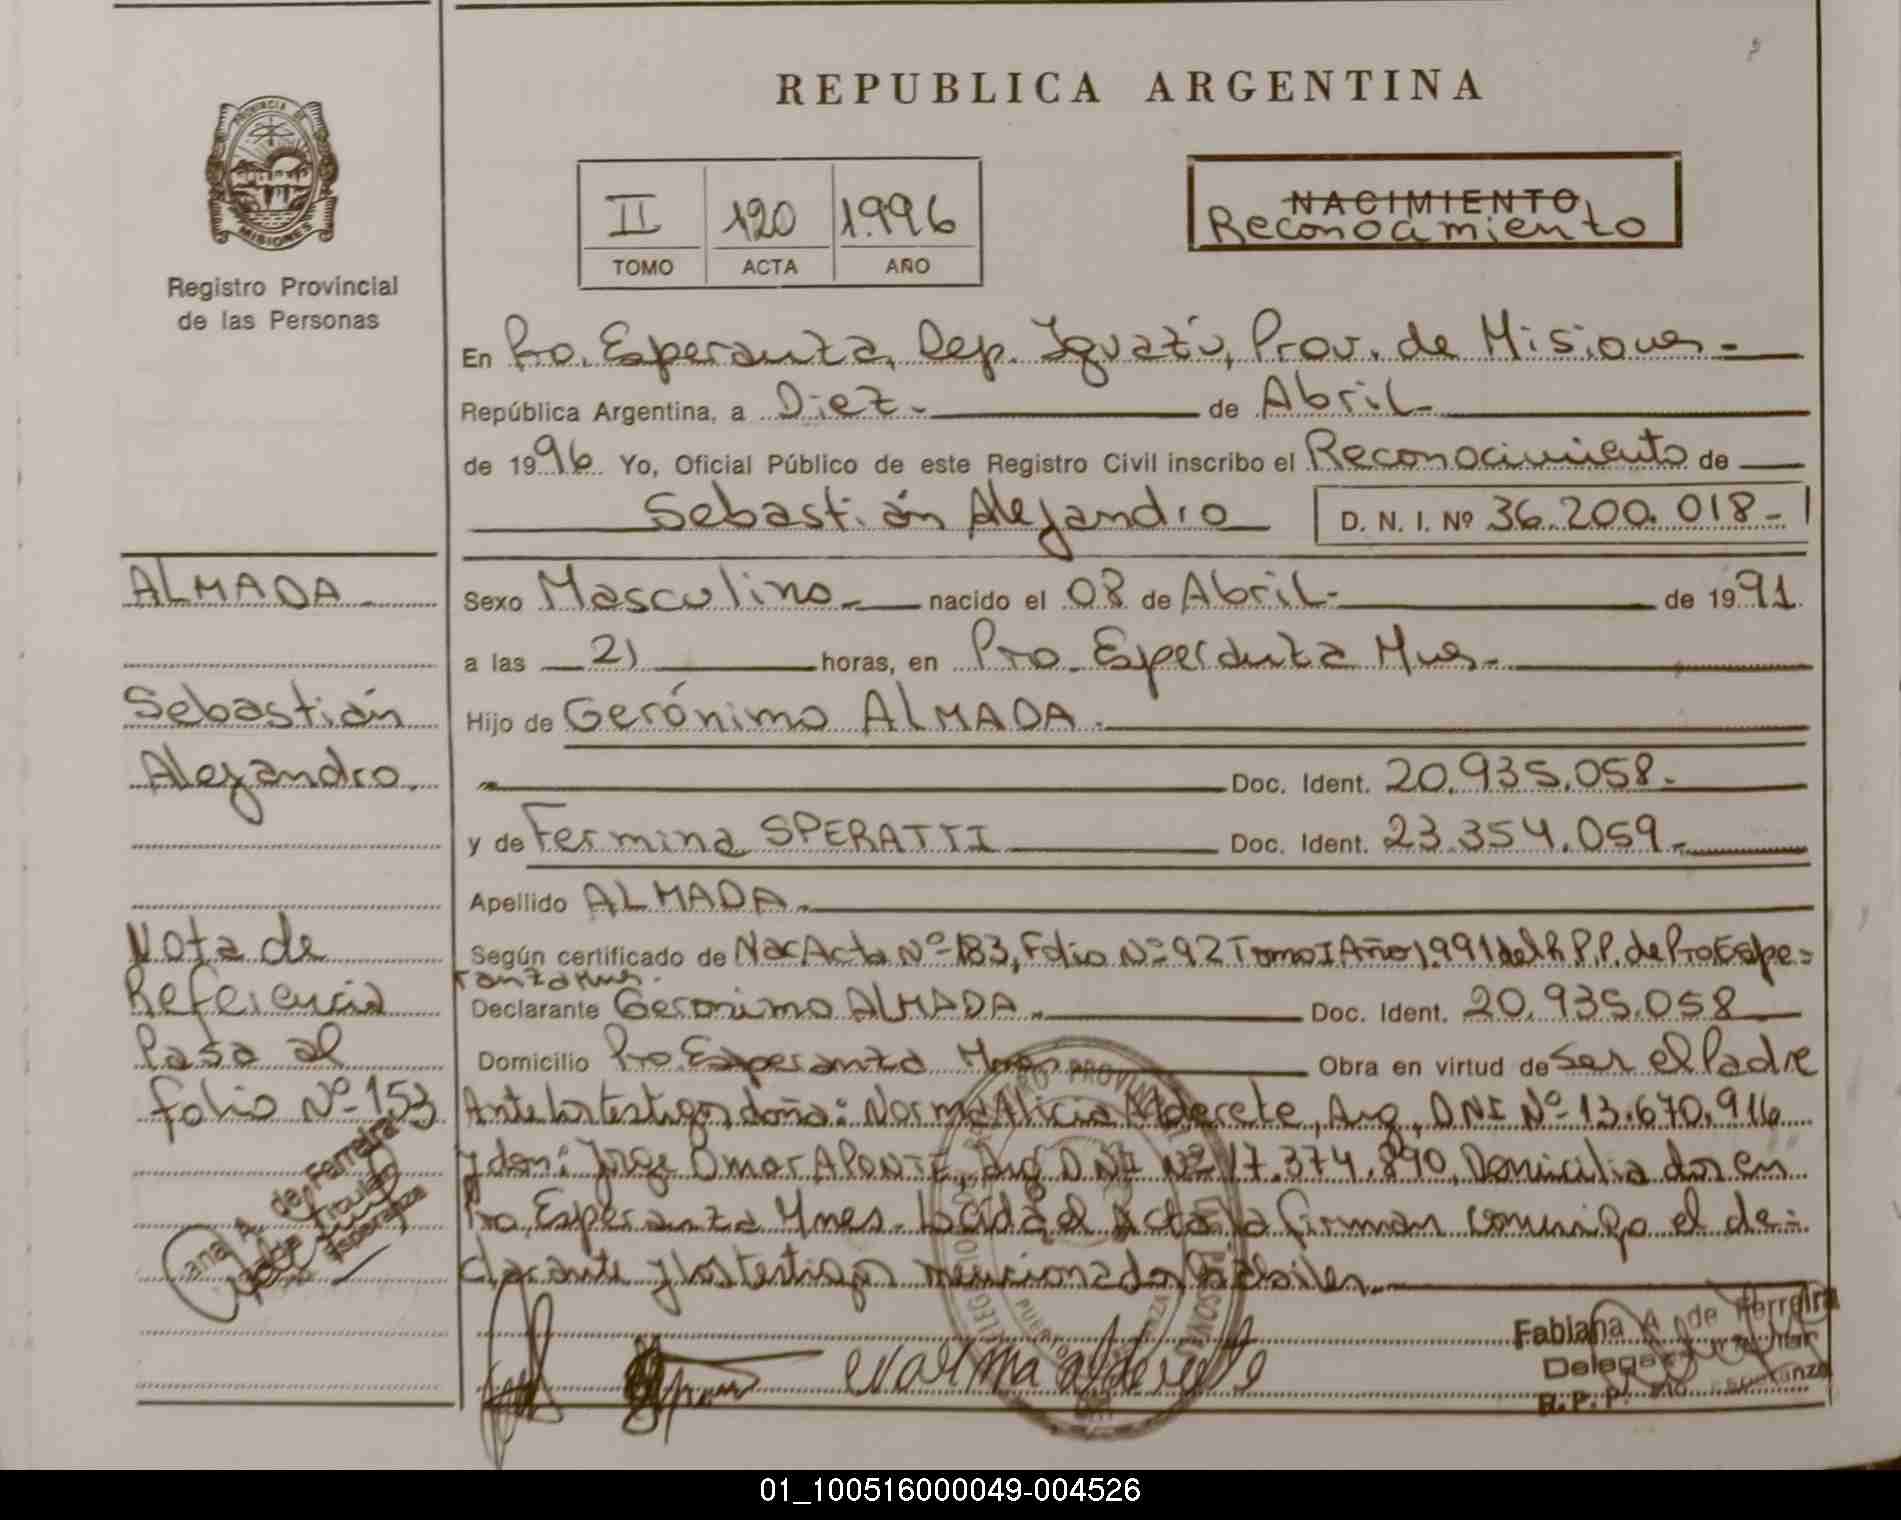 REPUBLICA ARGENTINA
PROVINCIA DE
MISIONES
Registro Provincial
de las Personas
II 120 1.996
TOMO ACTA AÑO
NACIMIENTO
Reconocimiento
En Pto. Esperanza, Dep. Iguazú, Prov. de Misiones.-
República Argentina, a Diez.- de Abril.-
de 1996. Yo, Oficial Público de este Registro Civil inscribo el Reconocimiento de
Sebastián Alejandro D. N. I. Nº 36.200.018-
ALMADA.-
Sebastián
Alejandro.
Sexo Masculino.- nacido el 08 de Abril.- de 1991.
a las 21 horas, en Pto. Esperanza Mnes.-
Hijo de Gerónimo ALMADA.-
Doc. Ident. 20.935.058.-
y de Fermina SPERATTI Doc. Ident. 23.354.059.-
Apellido ALMADA.-
Nota de
Referencia
Pasa al
folio Nº-153
Según certificado de Nac Acta Nº-183, Folio Nº-92 Tomo I Año 1.991 del R.P.P. de Pto Espe=
ranza Mnes.
Declarante Geronimo ALMADA.- Doc. Ident. 20.935.058
Domicilio Pto. Esperanza Mnes Obra en virtud de Ser el Padre
Ante los testigos doña: Norma Alicia Alderete, Arg, DNI Nº-13.670.916
y don: Jorge Omar APONTE, Arg DNI Nº 17.374.890, Domiciliados en
Pto. Esperanza Mnes. Leída el Acta la firman conmigo el de=
clarante y los testigos mencionados
Norma Alderete
Fabiana A. de Ferreira
R. P. P.
01_100516000049-004526